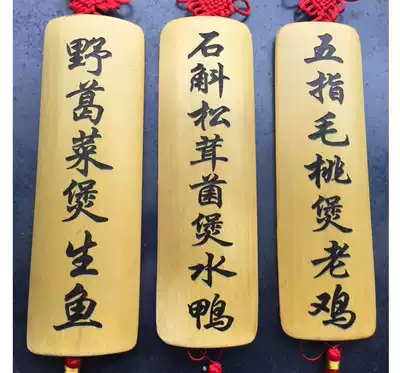 野葛菜煲生鱼
石斛松茸菌煲水鸭
五指毛桃煲老鸡